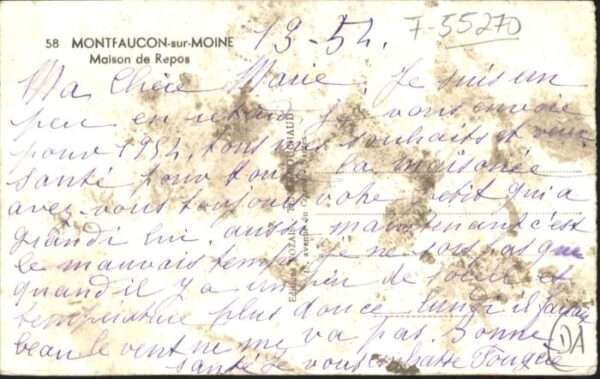 58 MONTFAUCON-sur-MOINE
Maison de Repos
13-54.
7-55270
Ma Chère Marie. Je suis un
peu en retard je vous envoie
pour 1954. tous mes souhaits et vœux
santé pour toute la maisonée
avez vous toujours votre petit qui a
grandi lui aussi maintenant c'est
le mauvais temps je ne sors pas que
quand il y a un peu de soleil et
température plus douce lundi il faisait
beau le vent ne me va pas. Bonne
santé Je vous embrasse
DA